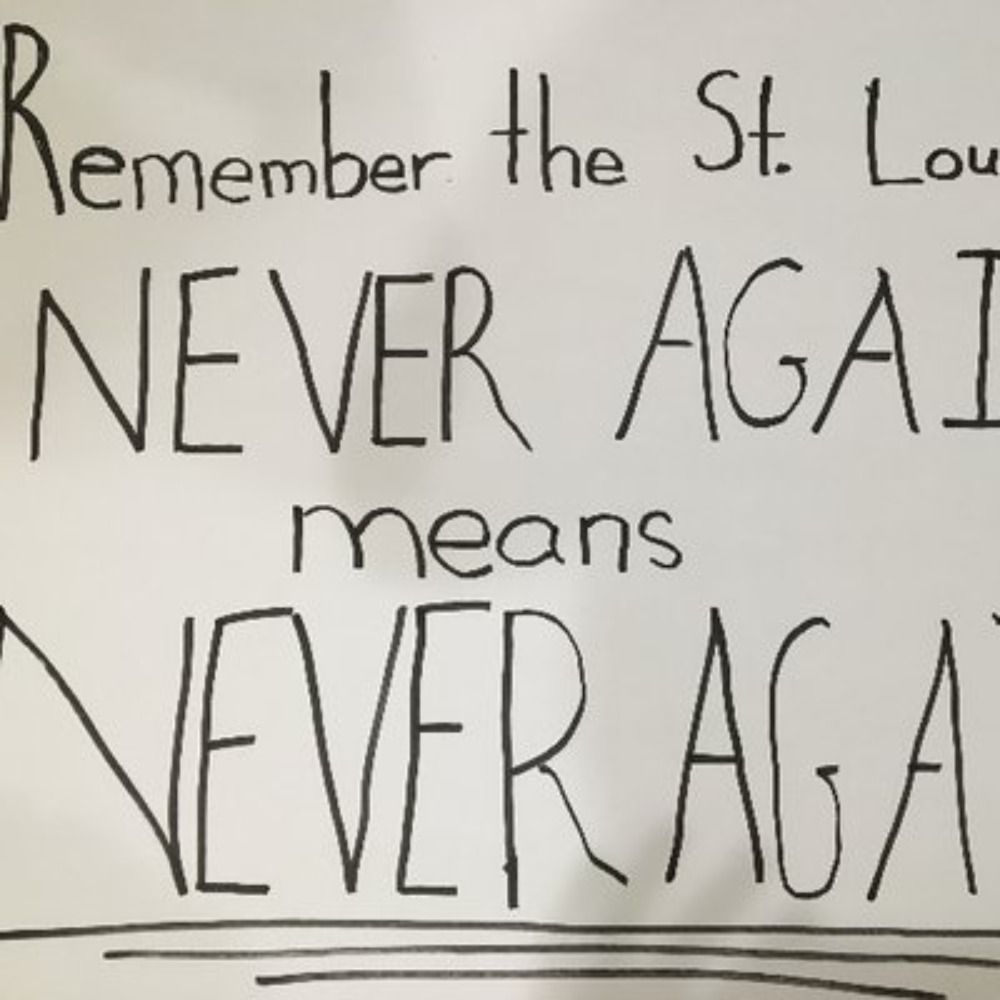 Remember the St. Lou
NEVER AGAI
means
NEVER AGA